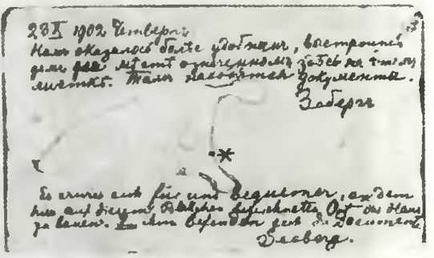 23 X 1902 Четвергъ
Намъ оказалось болѣе удобнымъ, выстроить
домъ на мѣстѣ означенномъ здѣсь на этомъ
листкѣ. Тамъ находятся документы.
Зебергъ
*
Es erwies sich für uns bequemer, an dem
hier auf diesem Blättchen bezeichneten Ort das Haus
zu bauen. In ihm befinden sich die Documente
Seeberg.